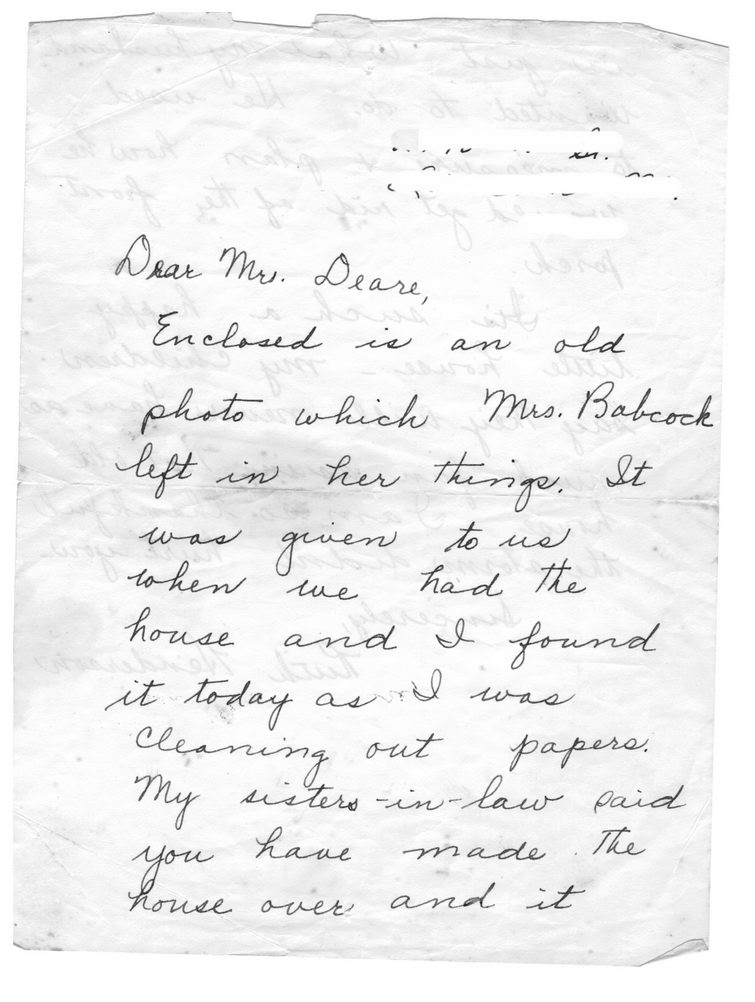 Dear Mr. Deare,
Enclosed is an old
photo which Mrs. Babcock
left in her things. It
was given to us
when we had the
house and I found
it today as I was
cleaning out papers.
My sisters-in-law said
you have made the
house over and it